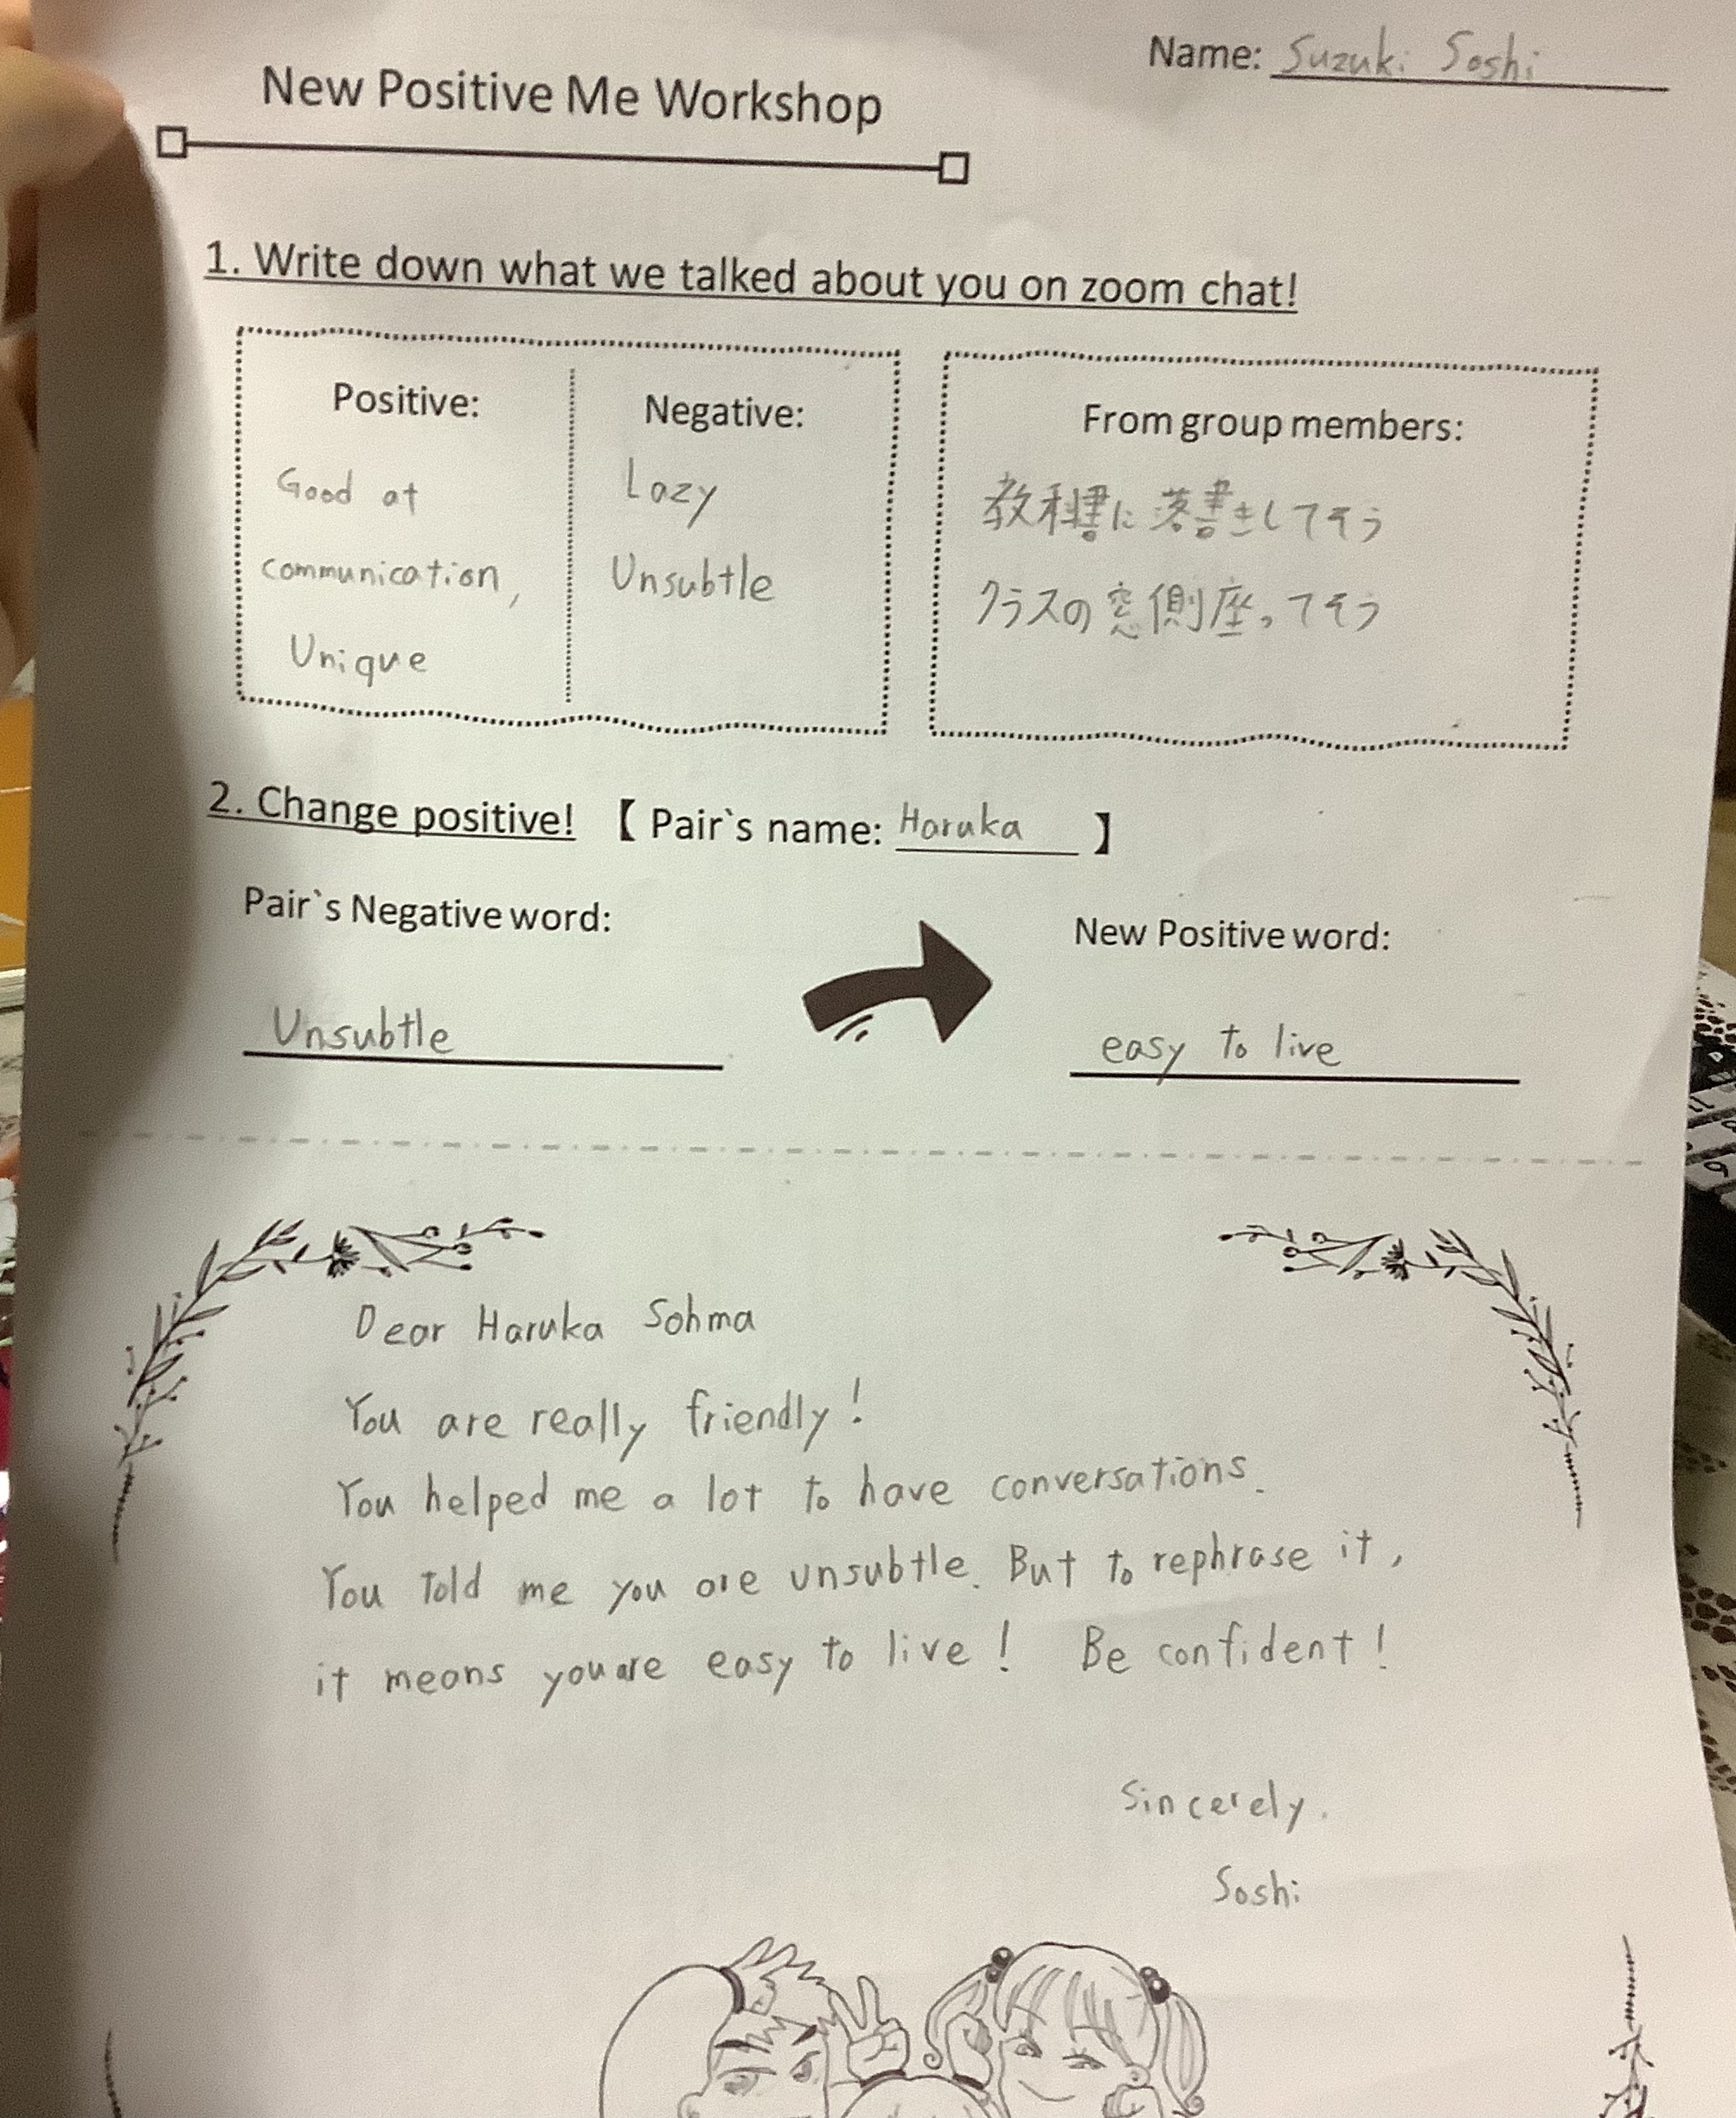 Name: Suzuki Soshi
New Positive Me Workshop
1. Write down what we talked about you on zoom chat!
Positive:
Good at
communication,
Unique
Negative:
Lazy
Unsubtle
From group members:
教科書に落書きしてそう
クラスの窓側座ってそう
2. Change positive! 【 Pair`s name: Haruka 】
Pair`s Negative word:
Unsubtle
New Positive word:
easy to live
Dear Haruka Sohma
You are really friendly!
You helped me a lot to have conversations.
You told me you are unsubtle. But to rephrase it,
it means you are easy to live! Be confident!
Sincerely.
Soshi